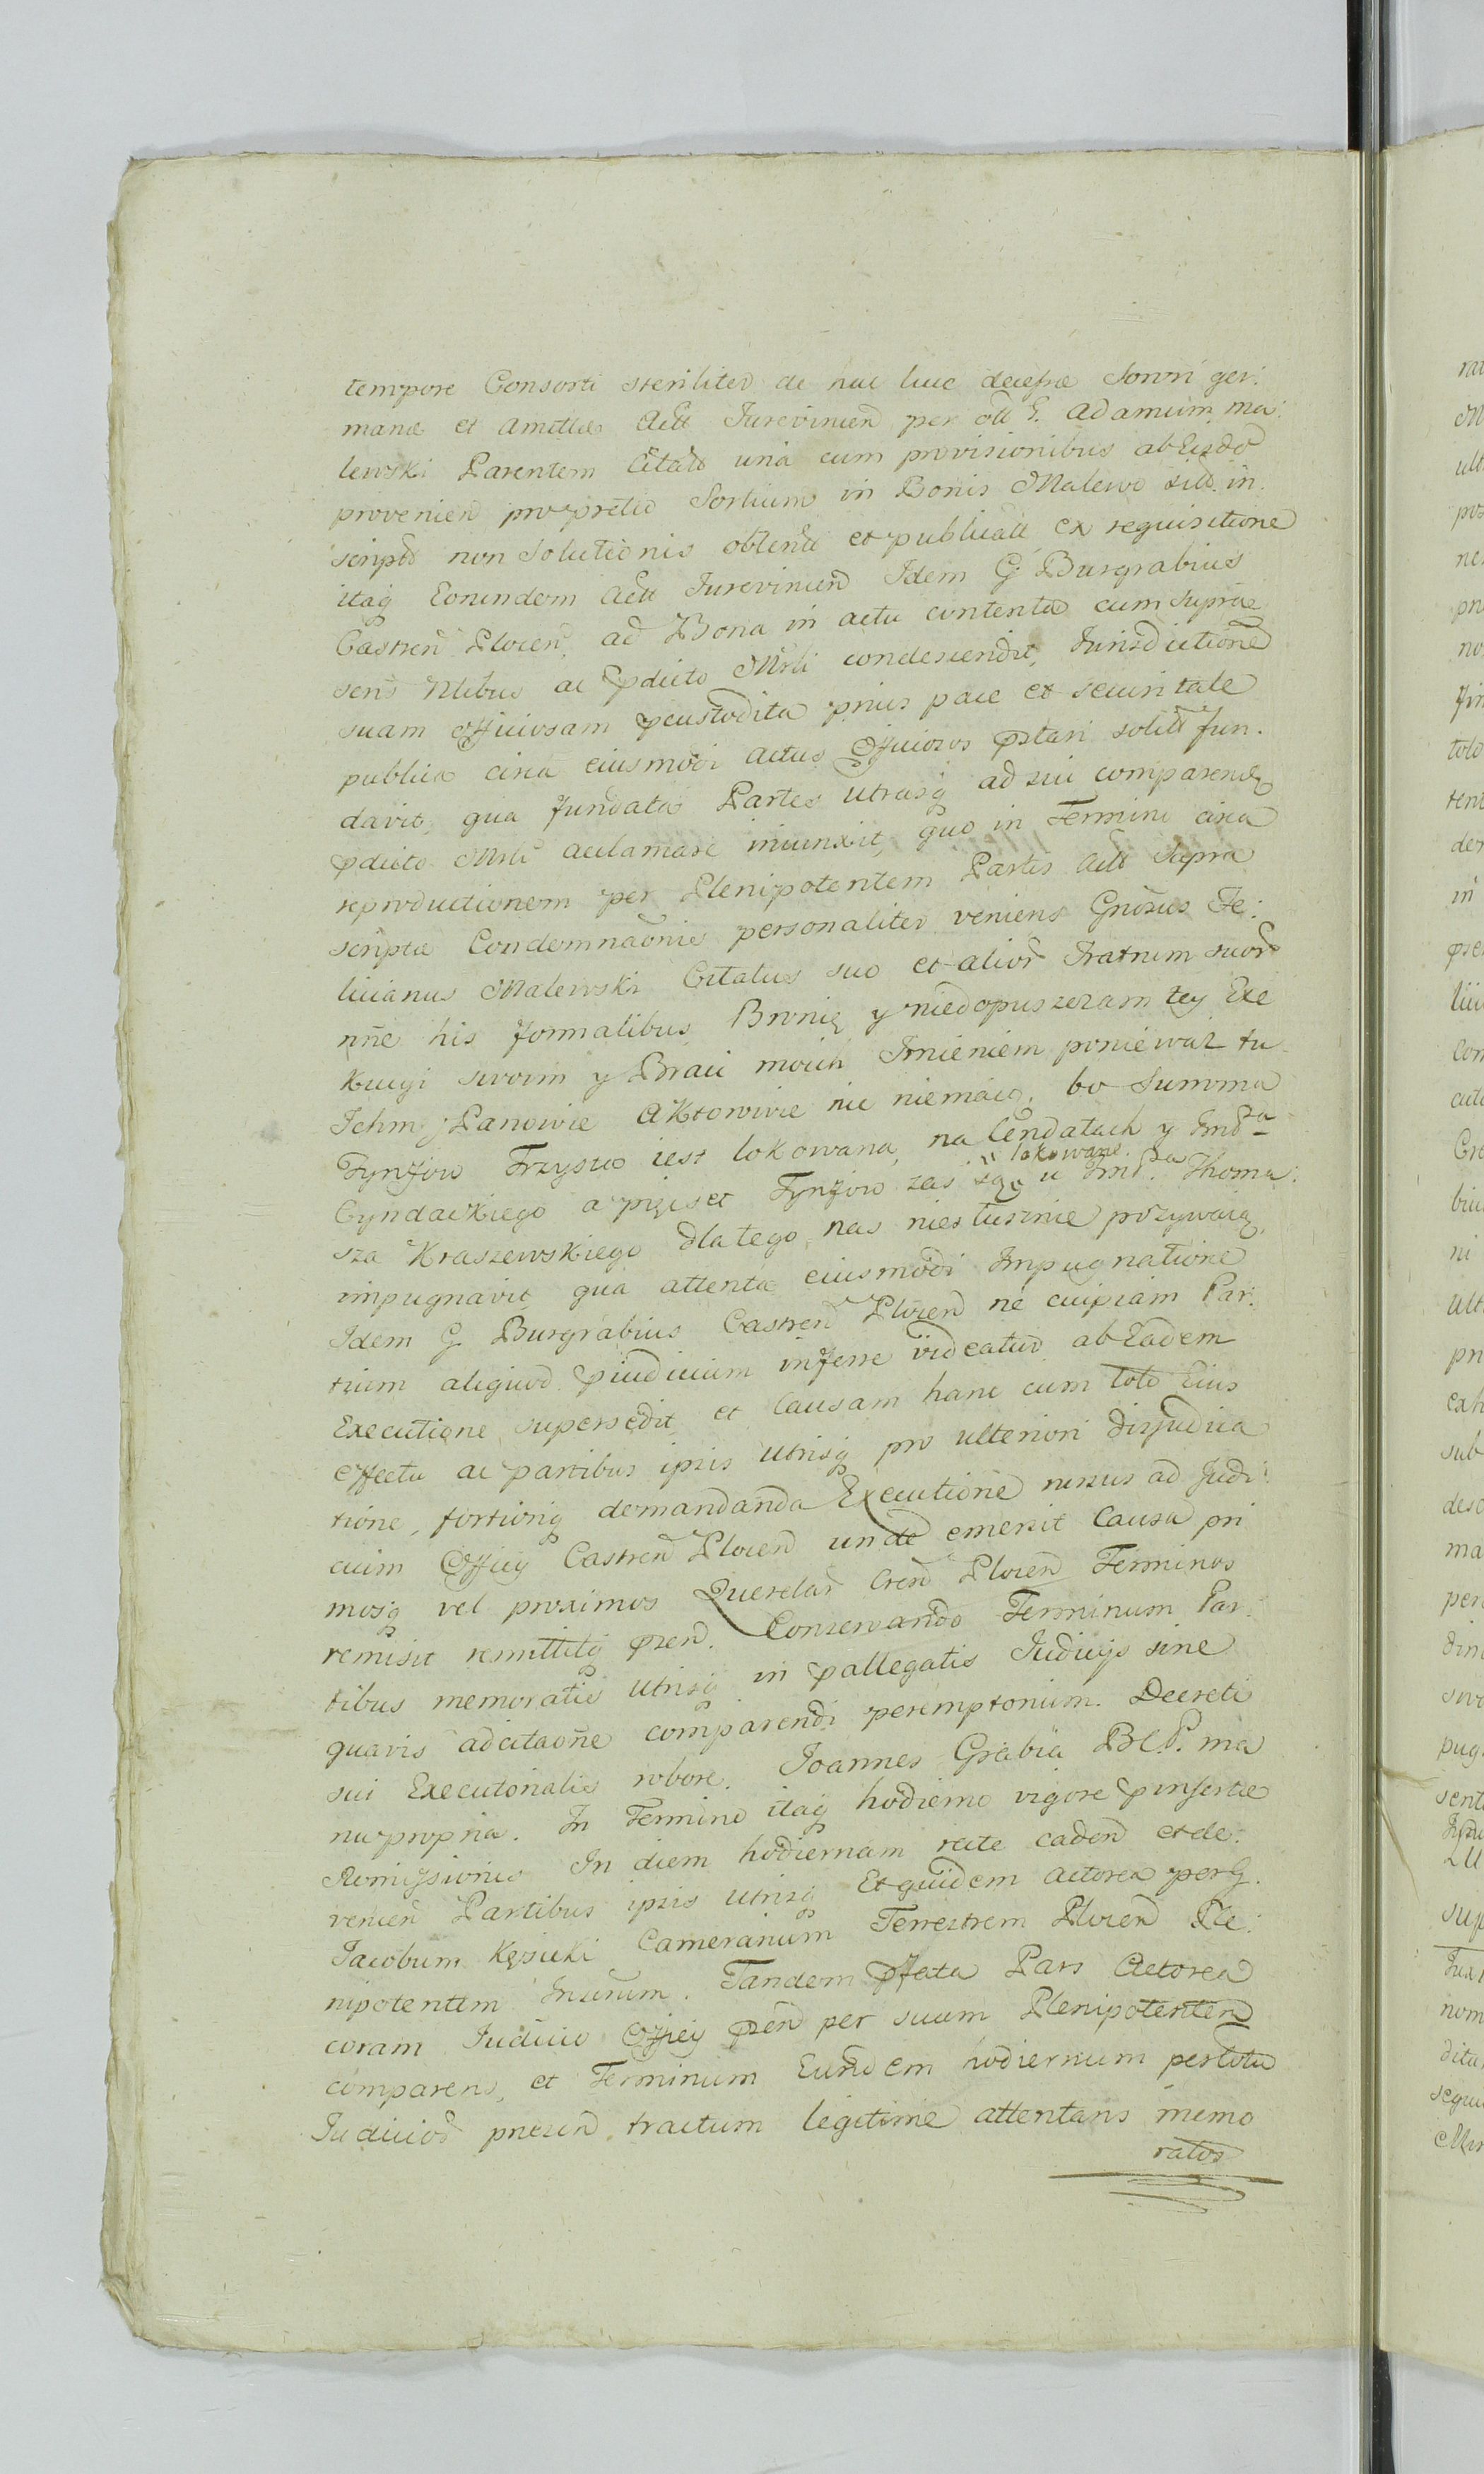 tempore Consorti steriliter de hac luce decessæ Sorori ger:
manæ et Amittæ Actt Jurevinien per olt G. Adamum Ma:
lewski Parentem Citatt unà cum provisionibus ab Eisdo
provenien pro prætio Sortium in Bonis Malewo sitt. in:
script non Solutionis obtenti et publicati ex requisitione
itaq Eorundem Actt Jurevinien Idem G. Burgrabius
Castren Plocen, ad Bona in actu contenta cum Supræ
sens Nlibus ac pdicto Mrli condescendit, Jurisdictione
suam officiosam pcustodita prius pace et securitate
publica circa eiusmodi actus Officiosos pstari solitt fun.
davit, qua fundata Partes utrasq ad sui comparend
pdicto Mrli acclamare iniunxit, quo in Termino circa
reproductionem per Plenipotentem Partis Actt Supra
scriptæ Condemnaonis personaliter veniens Gnosus Fe:
licianus Malewski Citatus suo et alior Fratrum suor
nne his formalibus Bronię y niedopuszczam tey Exe
kucyi swoim y Braci moich Imieniem ponieważ tu
Ichm Panowie Aktorowie nic niemaią, bo Summa
Tynfow Trzysta iest lokowana, na Cendatach y Imć Pa
Cyndackiego a pięcset Tynfow zaś są lokowane u Imć Pa Thoma:
sza Kraszewskiego dla tego nas niesłusznie pozywaią,
impugnavit, quà attentà eiusmodi Impugnatione
Idem G Burgrabius Castren Plocen ne cuipiam Par:
tium aliquod piudicium inferre videatur ab Eadem
Executione supersedit et Causam hanc cum toto Eius
effectu ac partibus ipsis utrisq pro ulteriori disjudica
tione, fortioriq demandanda Executione rursus ad Judi:
cium Officij Castren Plocen unde emersit Causa pri
mosq vel proximos Querelar Cren Plocen Terminos
remisit remittitq psen. Conservando Terminum Par:
tibus memoratis utrisq in pallegatis Judicijs sine
quavis adcitaone comparendi peremptorium. Decreti
sui Executorialis robore. Joannes Grabia B.C.P. ma
nu propria. In Termino itaq hodierno vigore pinsertæ
Remissionis In diem hodiernam rite caden et de:
venien Partibus ipsis utrisq Et quidem Actorea per G.
Jacobum Kęsicki Camerarium Terrestrem Plocen Ple:
nipotentem Insurum. Tandem pfata Pars Actorea
coram Judicio Officij psen per suum Plenipotenten
comparens, et Terminum Eundem hodiernum per totu
Judicior presen tractum legitime attentans memo
ratos